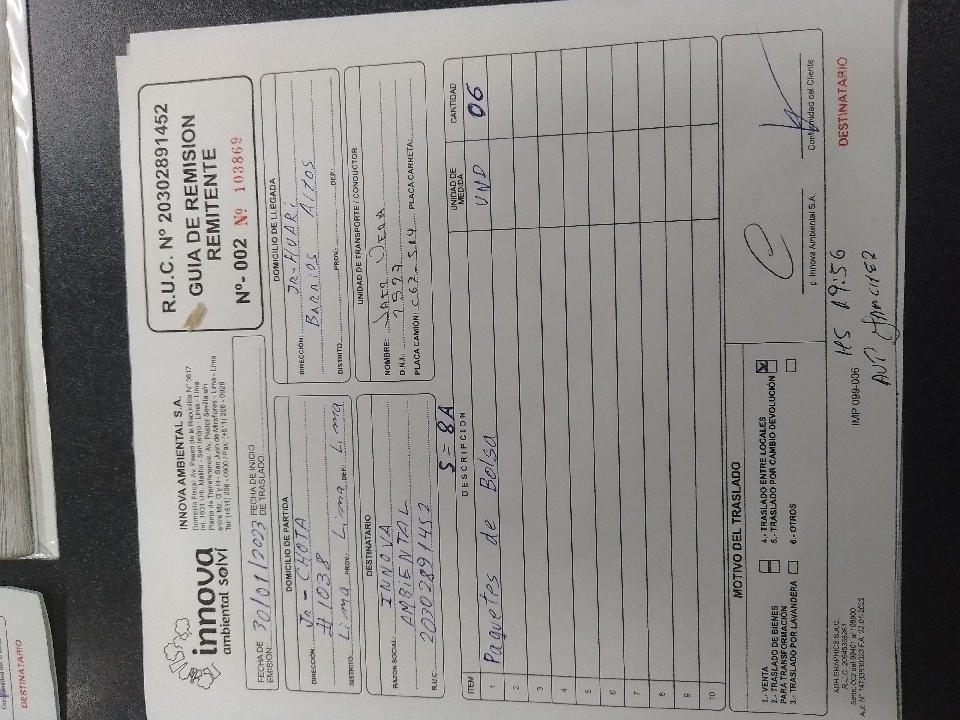 innova
ambiental solví
INNOVA AMBIENTAL S.A.
Domicilio Fiscal: Av. Paseo de la República N° 3617
Int. 1601 Urb. Malibu - San Isidro - Lima - Lima
Planta de Transferencia: Av. Pastor Sevilla s/n
entre Mz. G y H - San Juan de Miraflores - Lima - Lima
R.U.C. Nº 20302891452
GUIA DE REMISION
REMITENTE
Nº- 002 Nº 103869
FECHA DE EMISIÓN: 30/01/2023 FECHA DE INICIO DE TRASLADO:
DOMICILIO DE PARTIDA
DIRECCIÓN: Jr - CHOTA
#1038
DISTRITO: Lima PROV.: Lima DEP.: Lima
DOMICILIO DE LLEGADA
DIRECCIÓN: JR-HUARI
BARRIOS ALTOS
DISTRITO PROV.: DEP.:
DESTINATARIO
RAZON SOCIAL: INNOVA
AMBIENTAL
R.U.C.: 20302891452
UNIDAD DE TRANSPORTE / CONDUCTOR
NOMBRE:
D.N.I.:
PLACA CAMIÓN: PLACA CARRETA:
S = 8A
ITEM DESCRIPCION UNIDAD DE MEDIDA CANTIDAD
1 Paquetes de Bolsa UND 06
2
3
4
5
6
7
8
9
10
MOTIVO DEL TRASLADO
1.- VENTA
2.- TRASLADO DE BIENES
PARA TRANSFORMACIÓN
3.- TRASLADO POR LAVANDERA
4.- TRASLADO ENTRE LOCALES
5.- TRASLADO POR CAMBIO DEVOLUCIÓN
6.- OTROS
p. Innova Ambiental S.A.
Conformidad del Cliente
IMP 099-006
HS 19:56
DESTINATARIO
DESTINATARIO